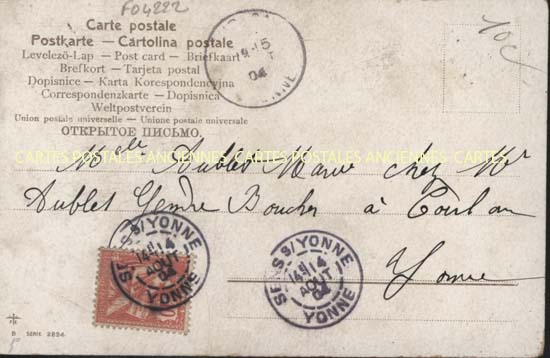 FO4222
10c
Carte postale
Postkarte - Cartolina postale
Levelező-Lap — Post card — Briefkaart
Brefkort — Tarjeta postal
Dopisnice — Karta Korespondencyjna
Correspondenzkarte — Dopisnica
Weltpostverein
Union postale universelle — Unione postale universale
ОТКРЫТОЕ ПИСЬМО.
15
04
YONNE
CARTES POSTALES ANCIENNES CARTES POSTALES ANCIENNES CARTES
Melle Aublet Marie chez Mr
Aublet Gendre Boucher à
Yonne
SENS S/YONNE
14
AOUT
04
YONNE
SENS S/YONNE
14
AOUT
04
YONNE
B SERIE 2894